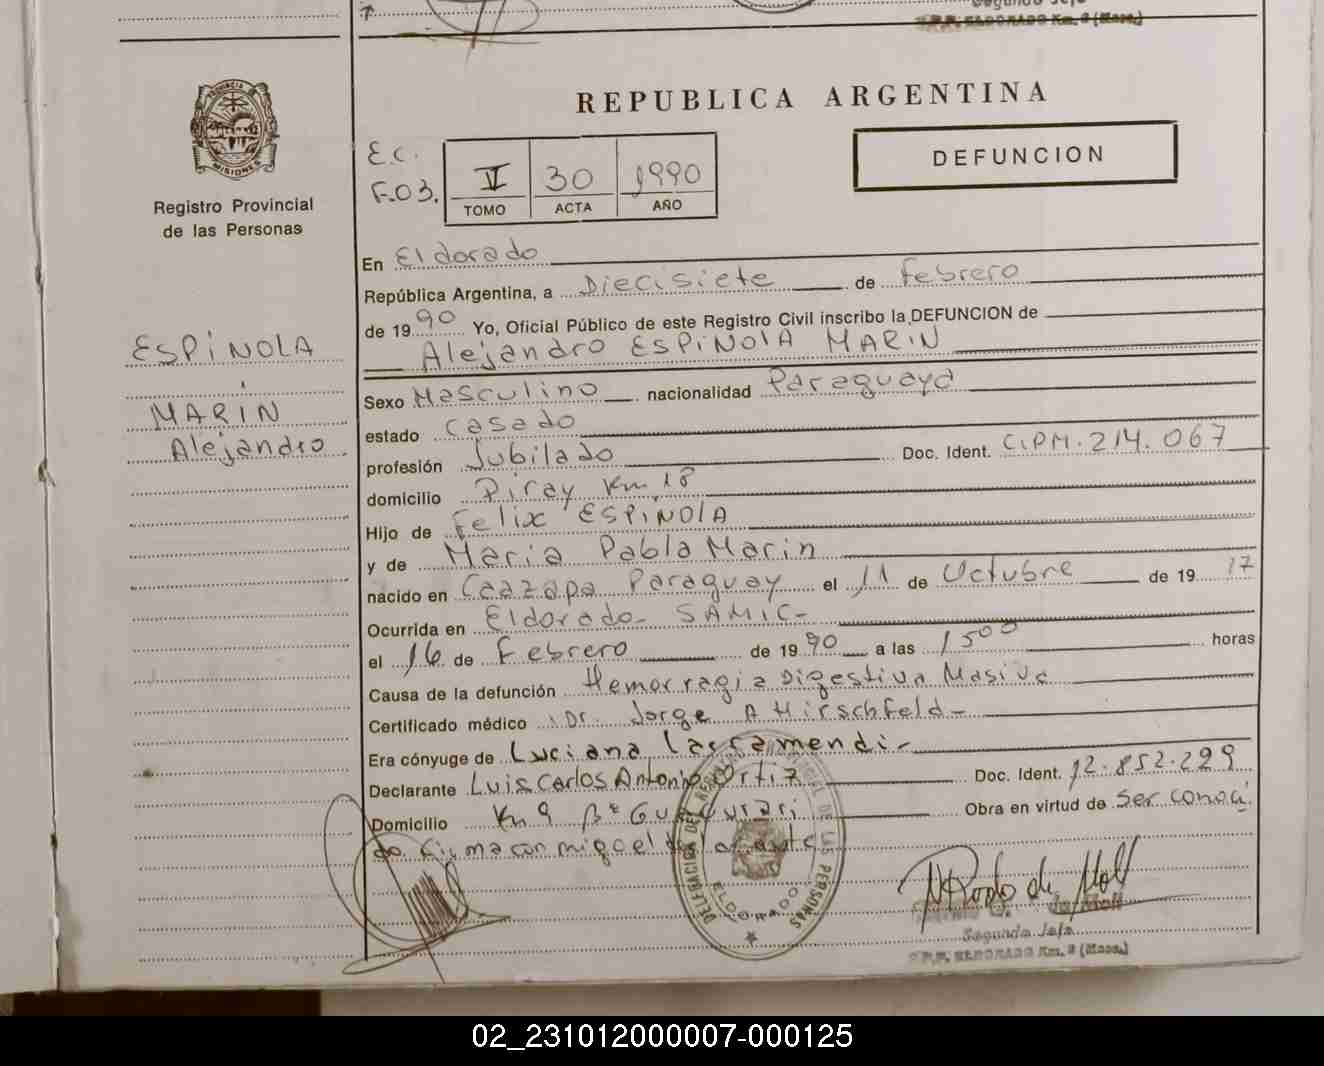 Segundo Jefe
R.P.P. ELDORADO Km. 9 (Mnes.)
PROVINCIA DE
MISIONES
Registro Provincial
de las Personas
ESPINOLA
MARIN
Alejandro
REPUBLICA ARGENTINA
E.C.
F.03.
V 30 1990
TOMO ACTA AÑO
DEFUNCION
En Eldorado
República Argentina, a Diecisiete de Febrero
de 1990 Yo, Oficial Público de este Registro Civil inscribo la DEFUNCION de
Alejandro ESPINOLA MARIN
Sexo Masculino nacionalidad Paraguaya
estado Casado
profesión Jubilado Doc. Ident. C.I.P.M. 214.067
domicilio Piray Km 18
Hijo de Felix ESPINOLA
y de Maria Pabla Marin
nacido en Caazapa Paraguay el 11 de Octubre de 19 17
Ocurrida en Eldorado - SAMIC-
el 16 de Febrero de 1990 a las 15 00 horas
Causa de la defunción Hemorragia Digestiva Masiva
Certificado médico Dr. Jorge A Hirschfeld -
Era cónyuge de Luciana Larramendi -
Declarante Luis Carlos Antonio Ortiz Doc. Ident. 12.852.229
Domicilio Km 9 Bº Guacurari Obra en virtud de ser conoci
do firma con miguel
DELEGACION DEL REGISTRO PROVINCIAL DE LAS PERSONAS
ELDORADO
Segundo Jefe
R.P.P. ELDORADO Km. 9 (Mnes.)
02_231012000007-000125